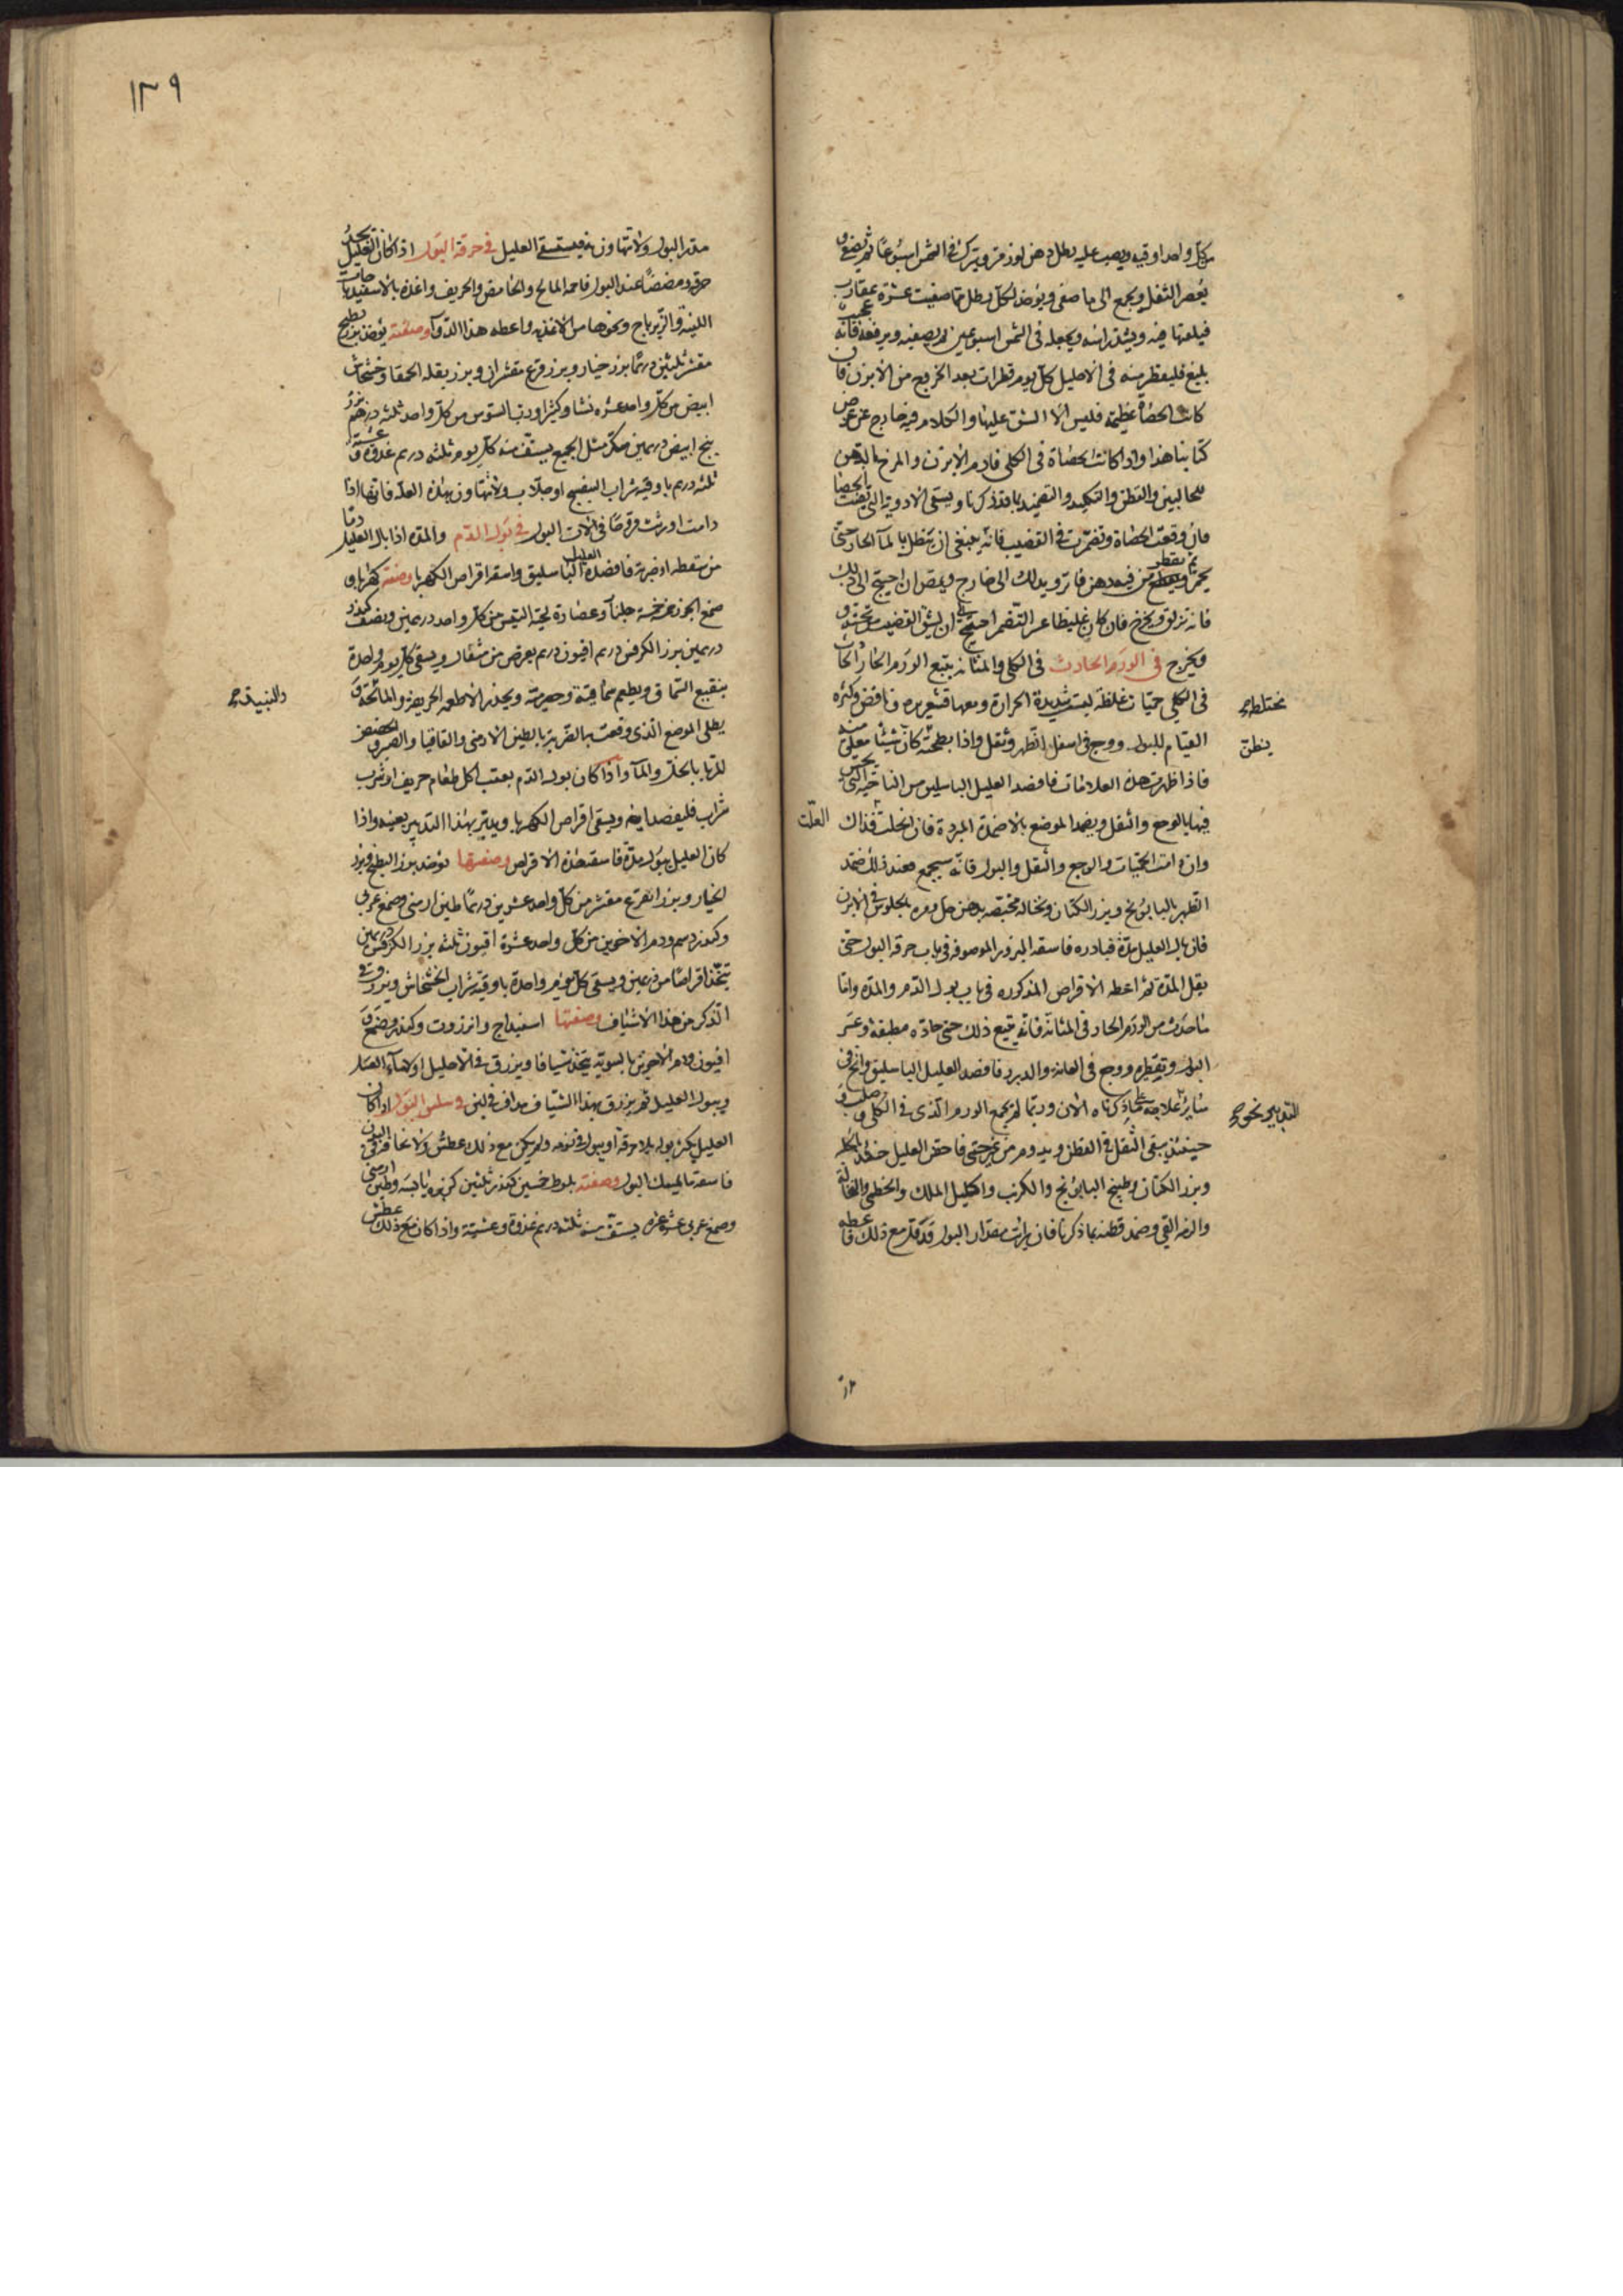 من كل واحد اوقيه ويصب عليه رطل دهن لوز مر ويترك فى الشمس اسبوعا ثم يصفى و
يعصر الثفل ويجمع الى ما صفى ويؤخذ لكل رطل مما صفيت عشرة عقارب
فيلقيها فيه ويشد راسه ويجعله فى الشمس اسبوعين ثم يصفيه ويرفعه فانه عجيب
بليغ فليقطر منه فى الاحليل كل يوم قطرات بعد الخروج من الابزن فان
كانت الحصاة عظيمة فليس الا الشق عليها والكلام فيه خارج عن غرض
كتابنا هذا واذا كانت الحصاة فى الكلى فادم الابزن والمرخ بالدهن
للحالبين والقطن والتكميد والتضميد بما قد ذكرنا ويسقى الادوية التى تفتت الحصا
فان وقعت الحصاة وتضمرت فى القضيب فانه ينبغى ان ينطل بالماء الحار حتى
يحمر ثم يقطر فيه دهن فاتر ويدلك الى خارج ويمص ان احتيج الى ذلك
فانه تزلق ويخرج فان كان غليظا عسر التضمر احتيج الى ان يشق القضيب من تحته و
ويخرج فى الورم الحادث فى الكلى والمثانه يتبع الورم الحار الحادث
فى الكلى حميات غلظه ليست شديدة الحرارة ومعها قشعريره ونافض وكثره
مختلطه
القيام للبول ووجع فى اسفل الظهر وثقل واذا بطحته كان شيئا معلق منه
ينطق
فاذا ظهرت هذه العلامات فافصد العليل الباسليق من الناحية التى يحس
فيها بالوجع والثقل ويضمد الموضع بالاضمدة المبردة فان انحلت فذاك
العلّت
وان دامت الحميات والوجع والثقل والبول فانه سيجمع فعند ذلك ضمد
الظهر بالبابونج وبزر الكتان ونخاله مخبصه بدهن حل ومره بالجلوس فى الابزن
فان بال العليل مدّة فبادره فاسقه البزور الموصوفه فى باب حرقه البول حتى
يقل المدّة ثم اعطه الاقراص المذكوره فى باب بول الدم والمدّه واما
ما حدث من الورم الحار فى المثانة فانه يتبع ذلك حمى حادّه مطبقة وعسر
البول وتقطيره ووجع فى العانة والدبر فافصد العليل الباسليق وانح فى
ساير علاجه على ما ذكرناه الان وربما لم يجمع الورم الذى فى الكلى و صلب و
التدبير نحوه
حينئذ يبقى الثقل فى القطن ويدوم من غير حمى فاحقن العليل حينئذ بالحلبة
وبزر الكتان وطبيخ البابونج والكرنب واكليل الملك والخطمى والنخالة
والزمه القى وضمد قطنه بما ذكرنا فان رايت مقدار البول قد قل مع ذلك فاعطه
١٣٩
مدر البول ولا تتهاون به فيستسقى العليل فى حرقة البول اذا كان العليل يجد
حرقة ومضضا عند البول فاحمه المالح والحامض والحريف واغذه بالاسفيدباجات
اللينة والزيرباج ونحوها من الاغذيه واعطه هذا الدواء وصفته يؤخذ بزر بطيخ
مقشر ثلثين درهما بزر خيار وبزر قرع مقشران وبزر بقله الحمقا وخشخاش
ابيض من كل واحد عشره نشا وكثيرا ورب السوس من كل واحد ثلثه دراهم بزر
بنج ابيض درهمين سكر مثل الجميع يستف منه كل يوم ثلثه دراهم غدوة وعشية
ثلثه دراهم باوقيه شراب البنفسج او جلاب ولا تتهاون بهذه العلة فانها اذا
دامت اورثت قروحا فى الات البول فى بول الدم والمدّه اذا بال العليل دما
من سقطه او ضربه فافصد العليل الباسليق واسقه اقراص الكهربا وصفته كهربا و
صمغ الجوز خمسه خمسة جلنار وعصارة لحية التيس من كل واحد درهمين ونصف كندر
درهمين بزر الكرفس درهم افيون درهم يقرض من مثقال ويسقى كل يوم واحدة
بنقيع السماق ويطعم سماقية وحصرمية ويحذر الاطعمه الحريفة والمالحة و
والنبيذ
يطلى الموضع الذى وقعت به الضربة بالطين الارمنى والقاقيا والصبر والحضض
للرتابا بالخل والماء واذا كان بول الدم بعقب اكل طعام حريف او شرب
شراب فليفصد ايضا ويسقى اقراص الكهربا ويدبر بهذا التدبير بعينه واذا
كان العليل يبول مدّة فاسقه هذه الاقراص وصفتها يؤخذ بزر البطيخ وبزر
الخيار وبزر القرع مقشر من كل واحد عشرين درهما طين ارمنى وصمغ عربى
وكندر دسم ودم الاخوين من كل واحد عشرة افيون ثلثه بزر الكرفس درهمين
يتخذ اقراصا من درهمين ويسقى كل يوم واحدة باوقية شراب الخشخاش ويزرق فى
الذكر من هذا الاشياف وصفتها اسفيداج وانزروت وكندر وصمغ و
افيون ودم الاخوين بالسوية يتخذ شيافا ويزرق فى الاحليل اولا ماء العسل
ويبول العليل ثم يزرق بهذا الشياف مداف فى لبن فى سلس البول اذا كان
العليل يكثر بوله بلا حرقة او يبول فى نومه ولم يكن مع ذلك عطش ولا نحافة فى البدن
فاسقه ما يمسك البول وصفته بلوط خمسين كندر ثلثين كزبره يابسه وطين ارمنى
وصمغ عربى عشره عشره يستف منه ثلثه دراهم غدوة وعشية واذا كان مع ذلك عطش